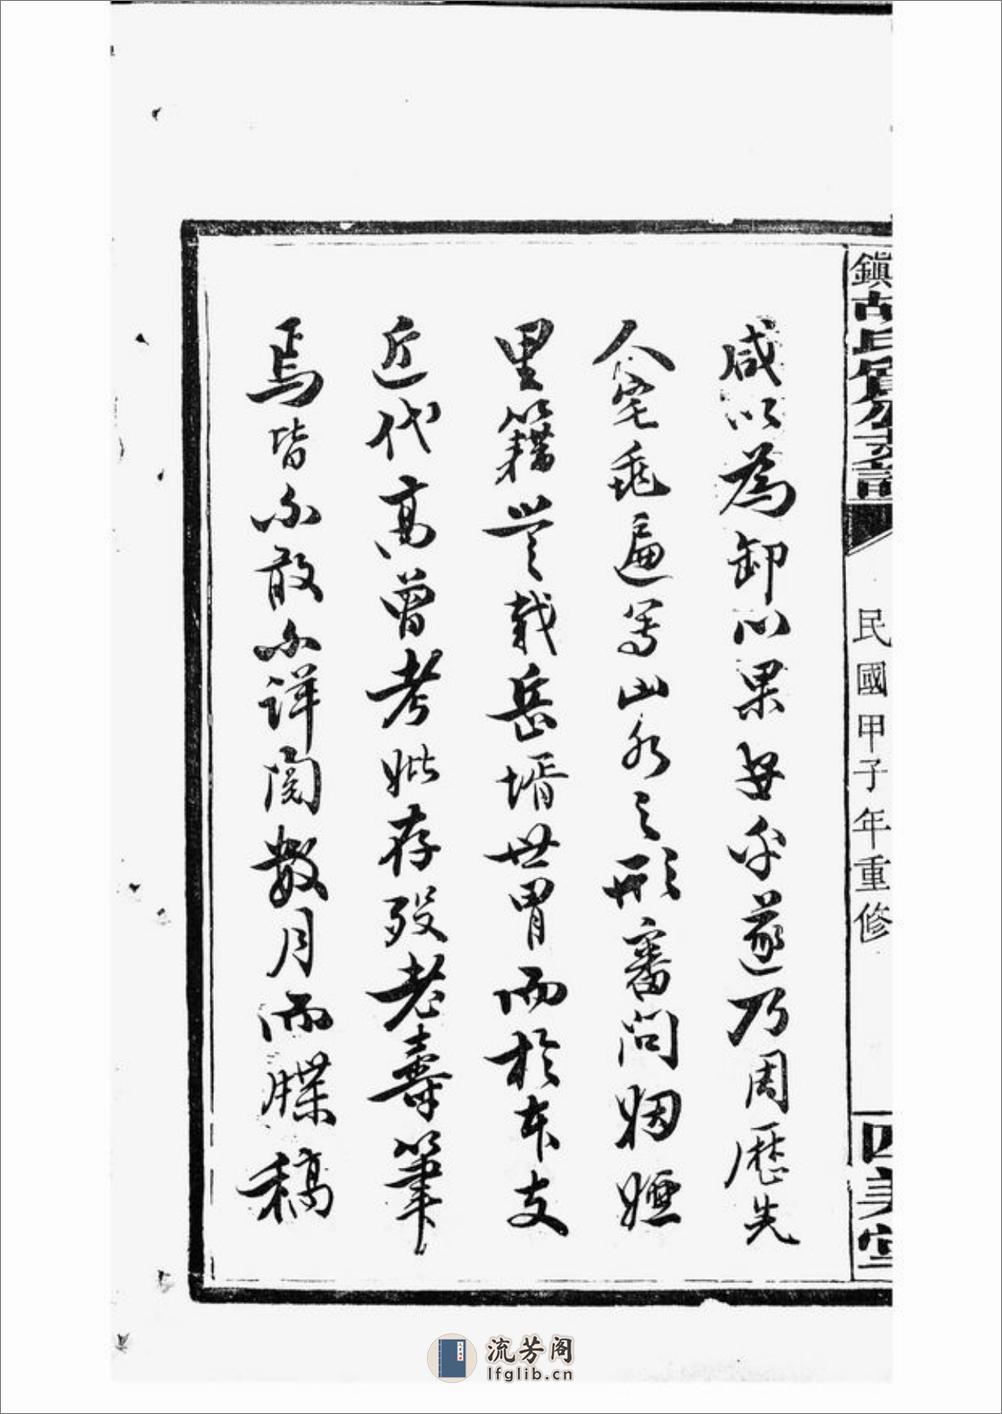 鎮胡氏貫公支譜
民國甲子年重修
四美堂
咸以為卸以果安乎遂乃周歷先
人宅兆遍寫山水之形審問姻婭
里籍豈載岳壻世冑而於本支
近代高曾考妣存歿老壽筆
焉皆不敢不詳閱數月而牒稿
流芳阁
lfglib.cn